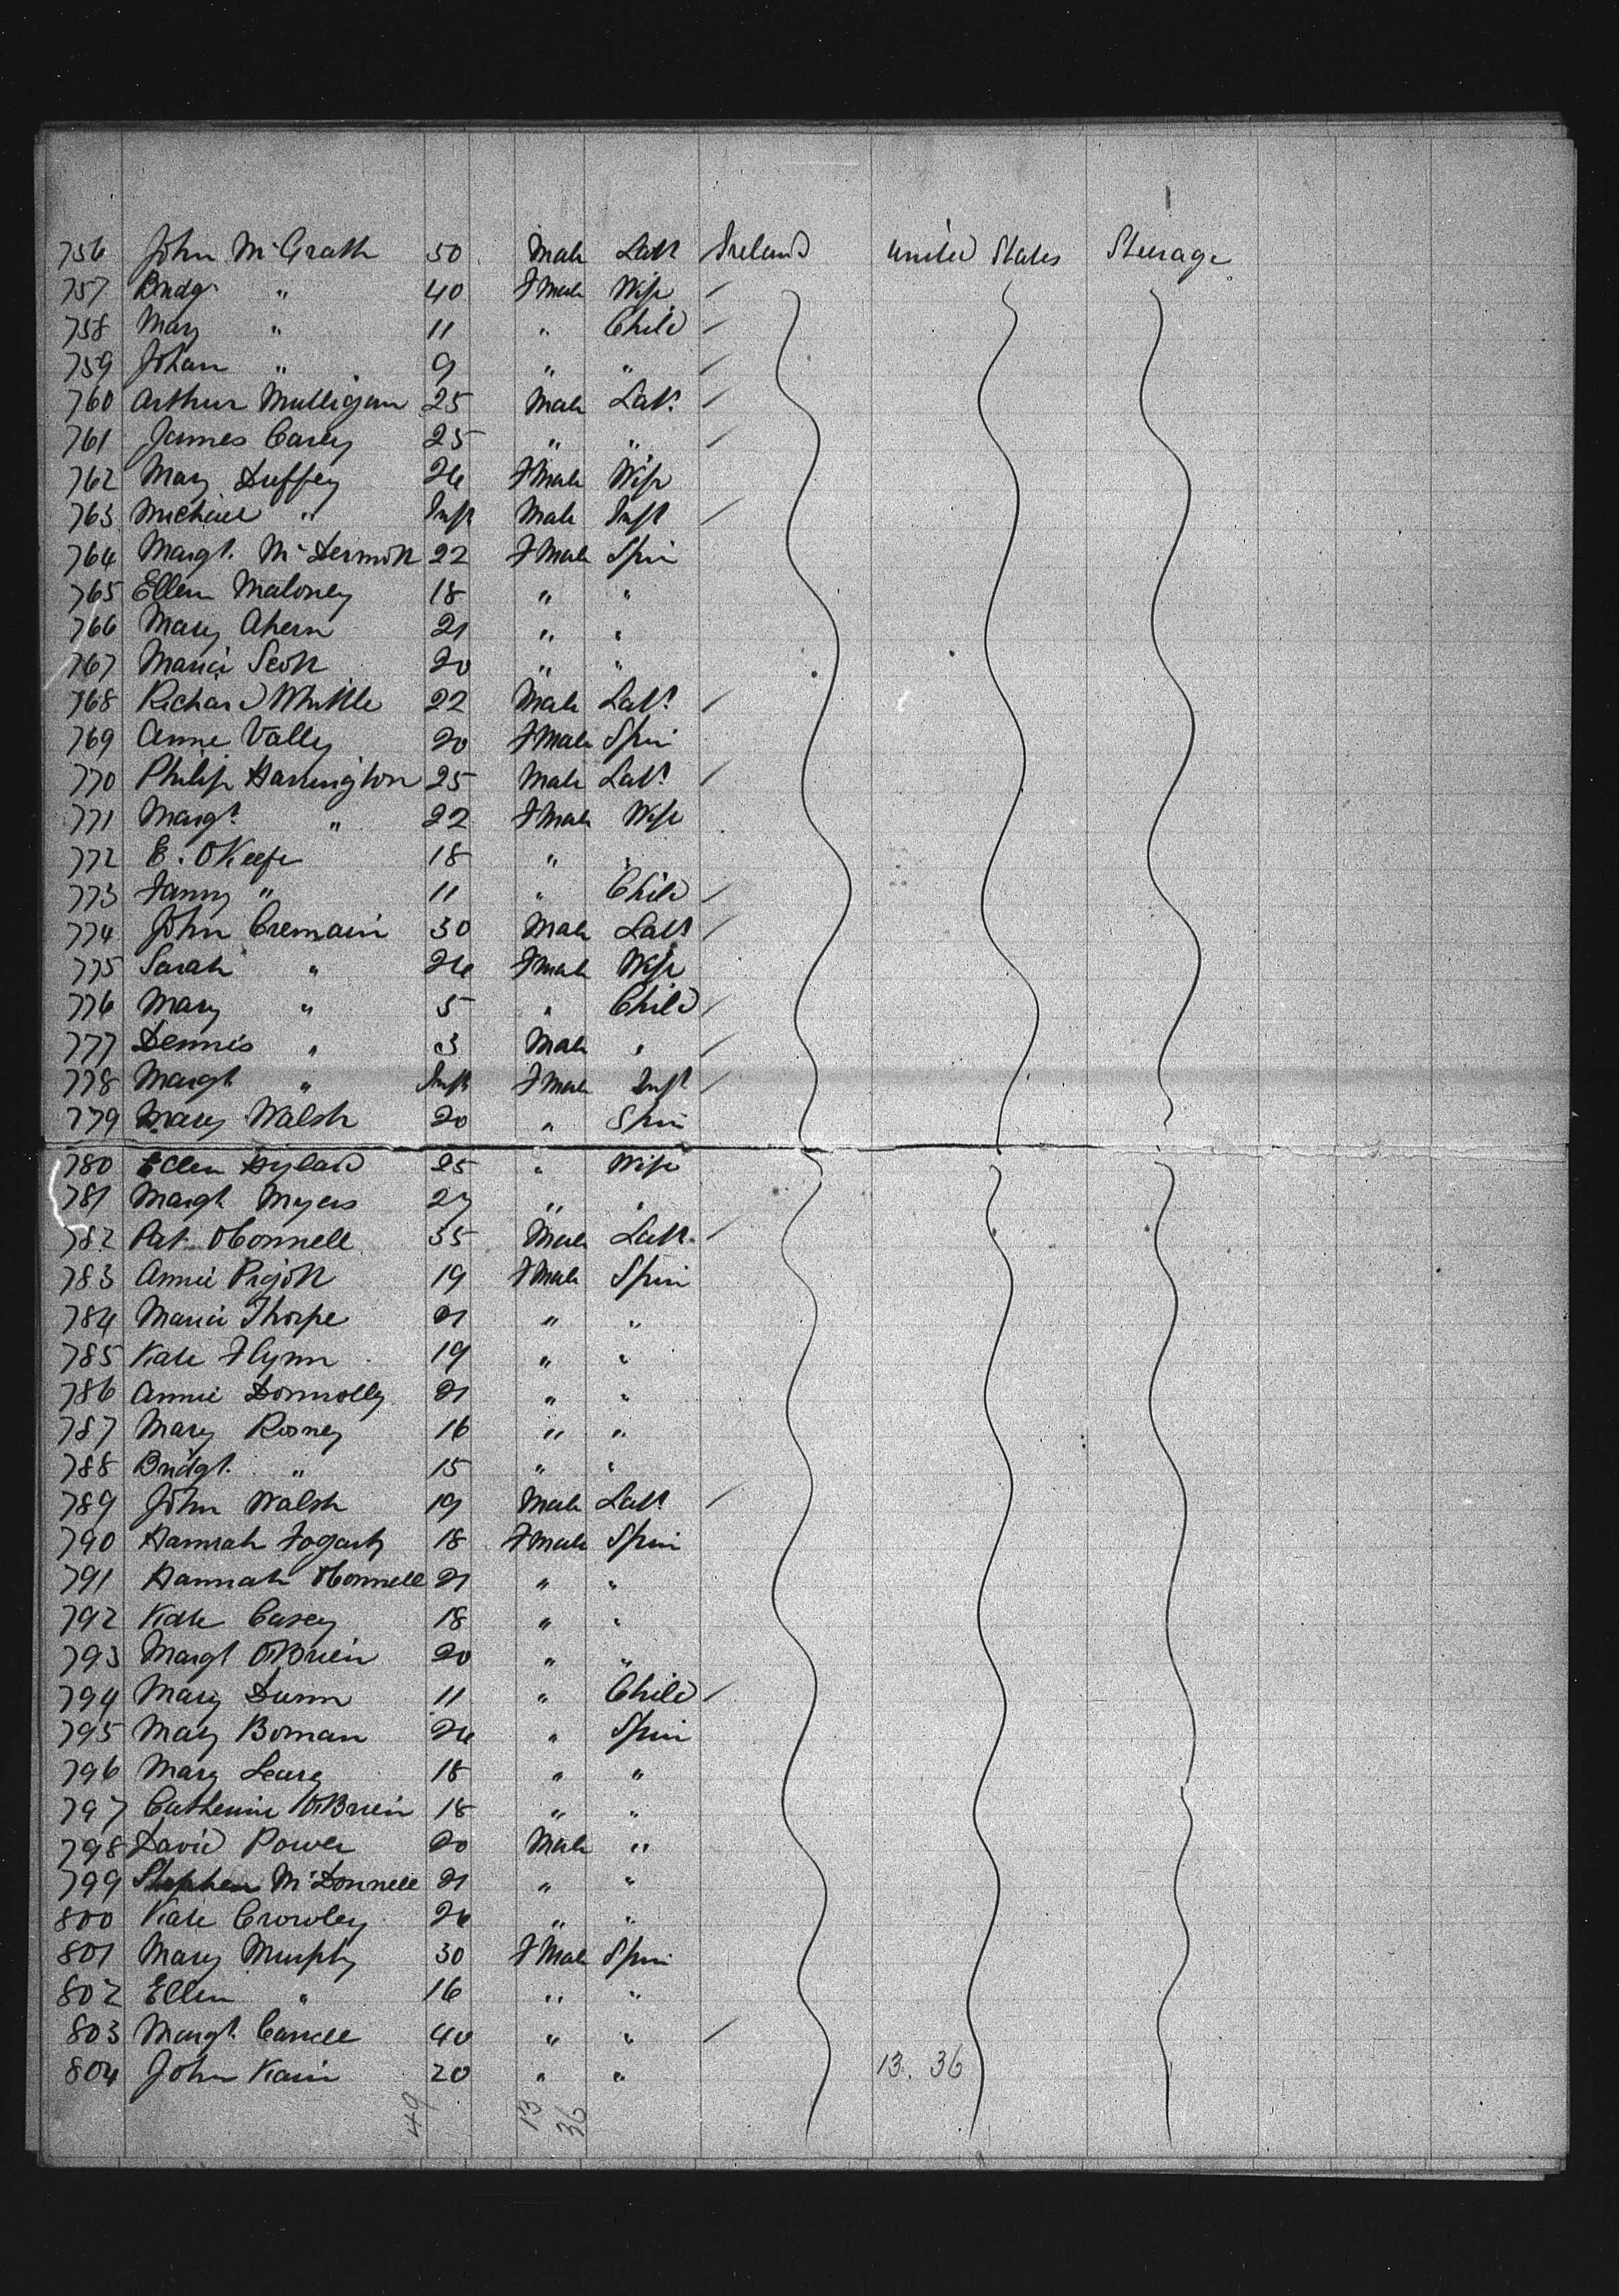 756 John McGrath 50 Male Labr Ireland United States Steerage
757 Bridgt " 40 Fmale Wife
758 Mary " 11 " Child
759 Johan " 9 " "
760 Arthur Mulligan 25 Male Labr
761 James Carey 25 " "
762 Mary Duffey 24 Fmale Wife
763 Michael " Inft Male Inft
764 Margt. McDermott 22 Fmale Spin
765 Ellen Maloney 18 " "
766 Mary Ahern 21 " "
767 Maria Scott 20 " "
768 Richard Whittle 22 Male Labr
769 Anne Vally 20 Fmale Spin
770 Philip Harrington 25 Male Labr
771 Margt " 22 Fmale Wife
772 E. OKeefe 18 " "
773 Fanny " 11 " Child
774 John Cremain 30 Male Labr
775 Sarah " 24 Fmale Wife
776 Mary " 5 " Child
777 Dennis " 3 Male "
778 Margt " Inft Fmale Inft
779 Mary Walsh 20 " Spin
780 Ellen Hyland 25 " Wife
781 Margt Myers 27 " "
782 Pat OConnell 35 Male Labr
783 Annie Pigott 19 Fmale Spin
784 Maria Thorpe 21 " "
785 Kate Flynn 19 " "
786 Annie Donnolly 21 " "
787 Mary Rosney 16 " "
788 Bridgt. " 15 " "
789 John Walsh 19 Male Labr
790 Hannah Fogarty 18 Fmale Spin
791 Hannah OConnell 21 " "
792 Kate Casey 18 " "
793 Margt OBrien 20 " "
794 Mary Dunn 11 " Child
795 Mary Boman 24 " Spin
796 Mary Leary 18 " "
797 Catherine OBrien 18 " "
798 David Power 20 Male "
799 Stephen McDonnell 21 " "
800 Kate Crowley 24 " "
801 Mary Murphy 30 Fmale Spin
802 Ellen " 16 " "
803 Margt 40 " "
804 John Kain 20 " " 13. 36
49 13 36